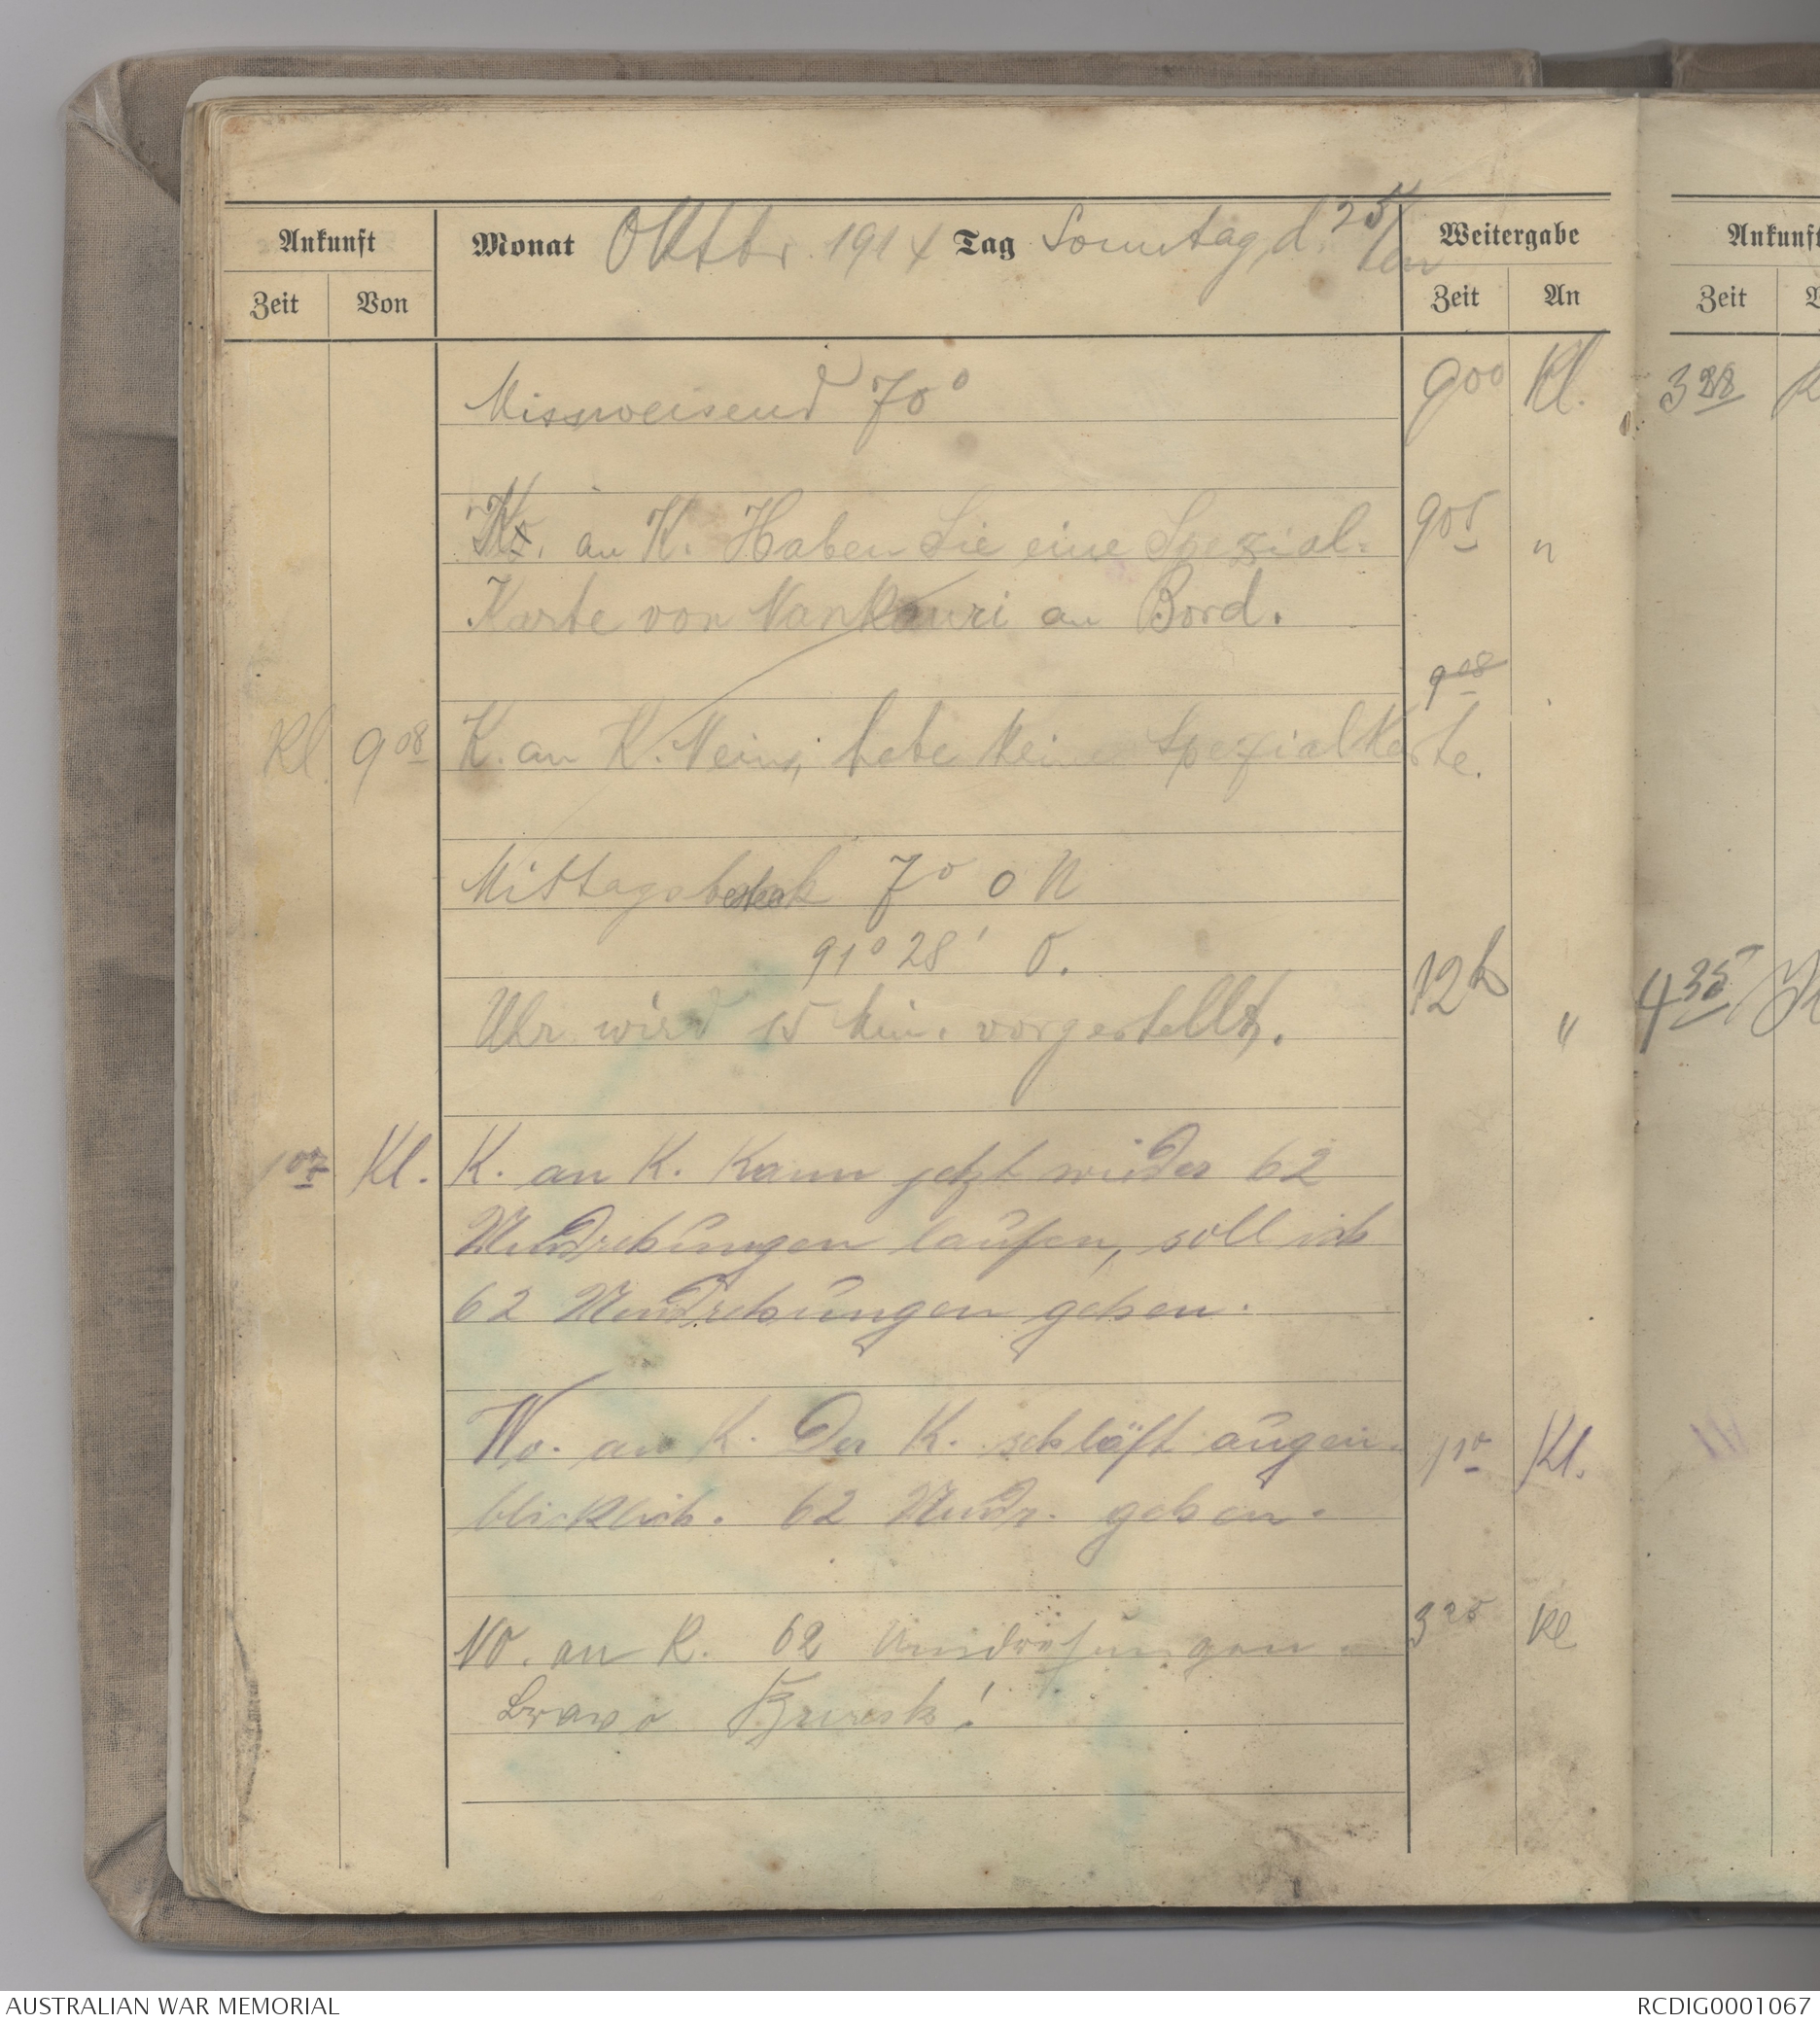 Ankunft Monat Oktbr. 1914 Tag Sonntag, d. 25/ten Weitergabe
Zeit Von Zeit An
Missweisend 70° 9⁰⁰ Kl.
an K. Haben Sie eine Spezial- 9⁰⁵ "
Karte von Nankauri an Bord.
9⁰⁸
Kl. 9⁰⁸ K. an K. Nein, habe keine Spezialkarte.
Mittagsbesteck 7° 0 N
91° 28' O.
Uhr wird 15 Min. vorgestellt. 12h "
1⁰⁷ Kl. K. an K. Kann jetzt wieder 62
Umdrehungen laufen, soll ich
62 Umdrehungen gehen.
Wo. an K. Der K. schläft augen- 1¹⁰ Kl.
blicklich. 62 Umdr. gehen.
WO. an K. 62 Umdrehungen 3²⁵ Kl
Bravo !
Ankunft
Zeit
3²⁸
4³⁵
AUSTRALIAN WAR MEMORIAL
RCDIG0001067